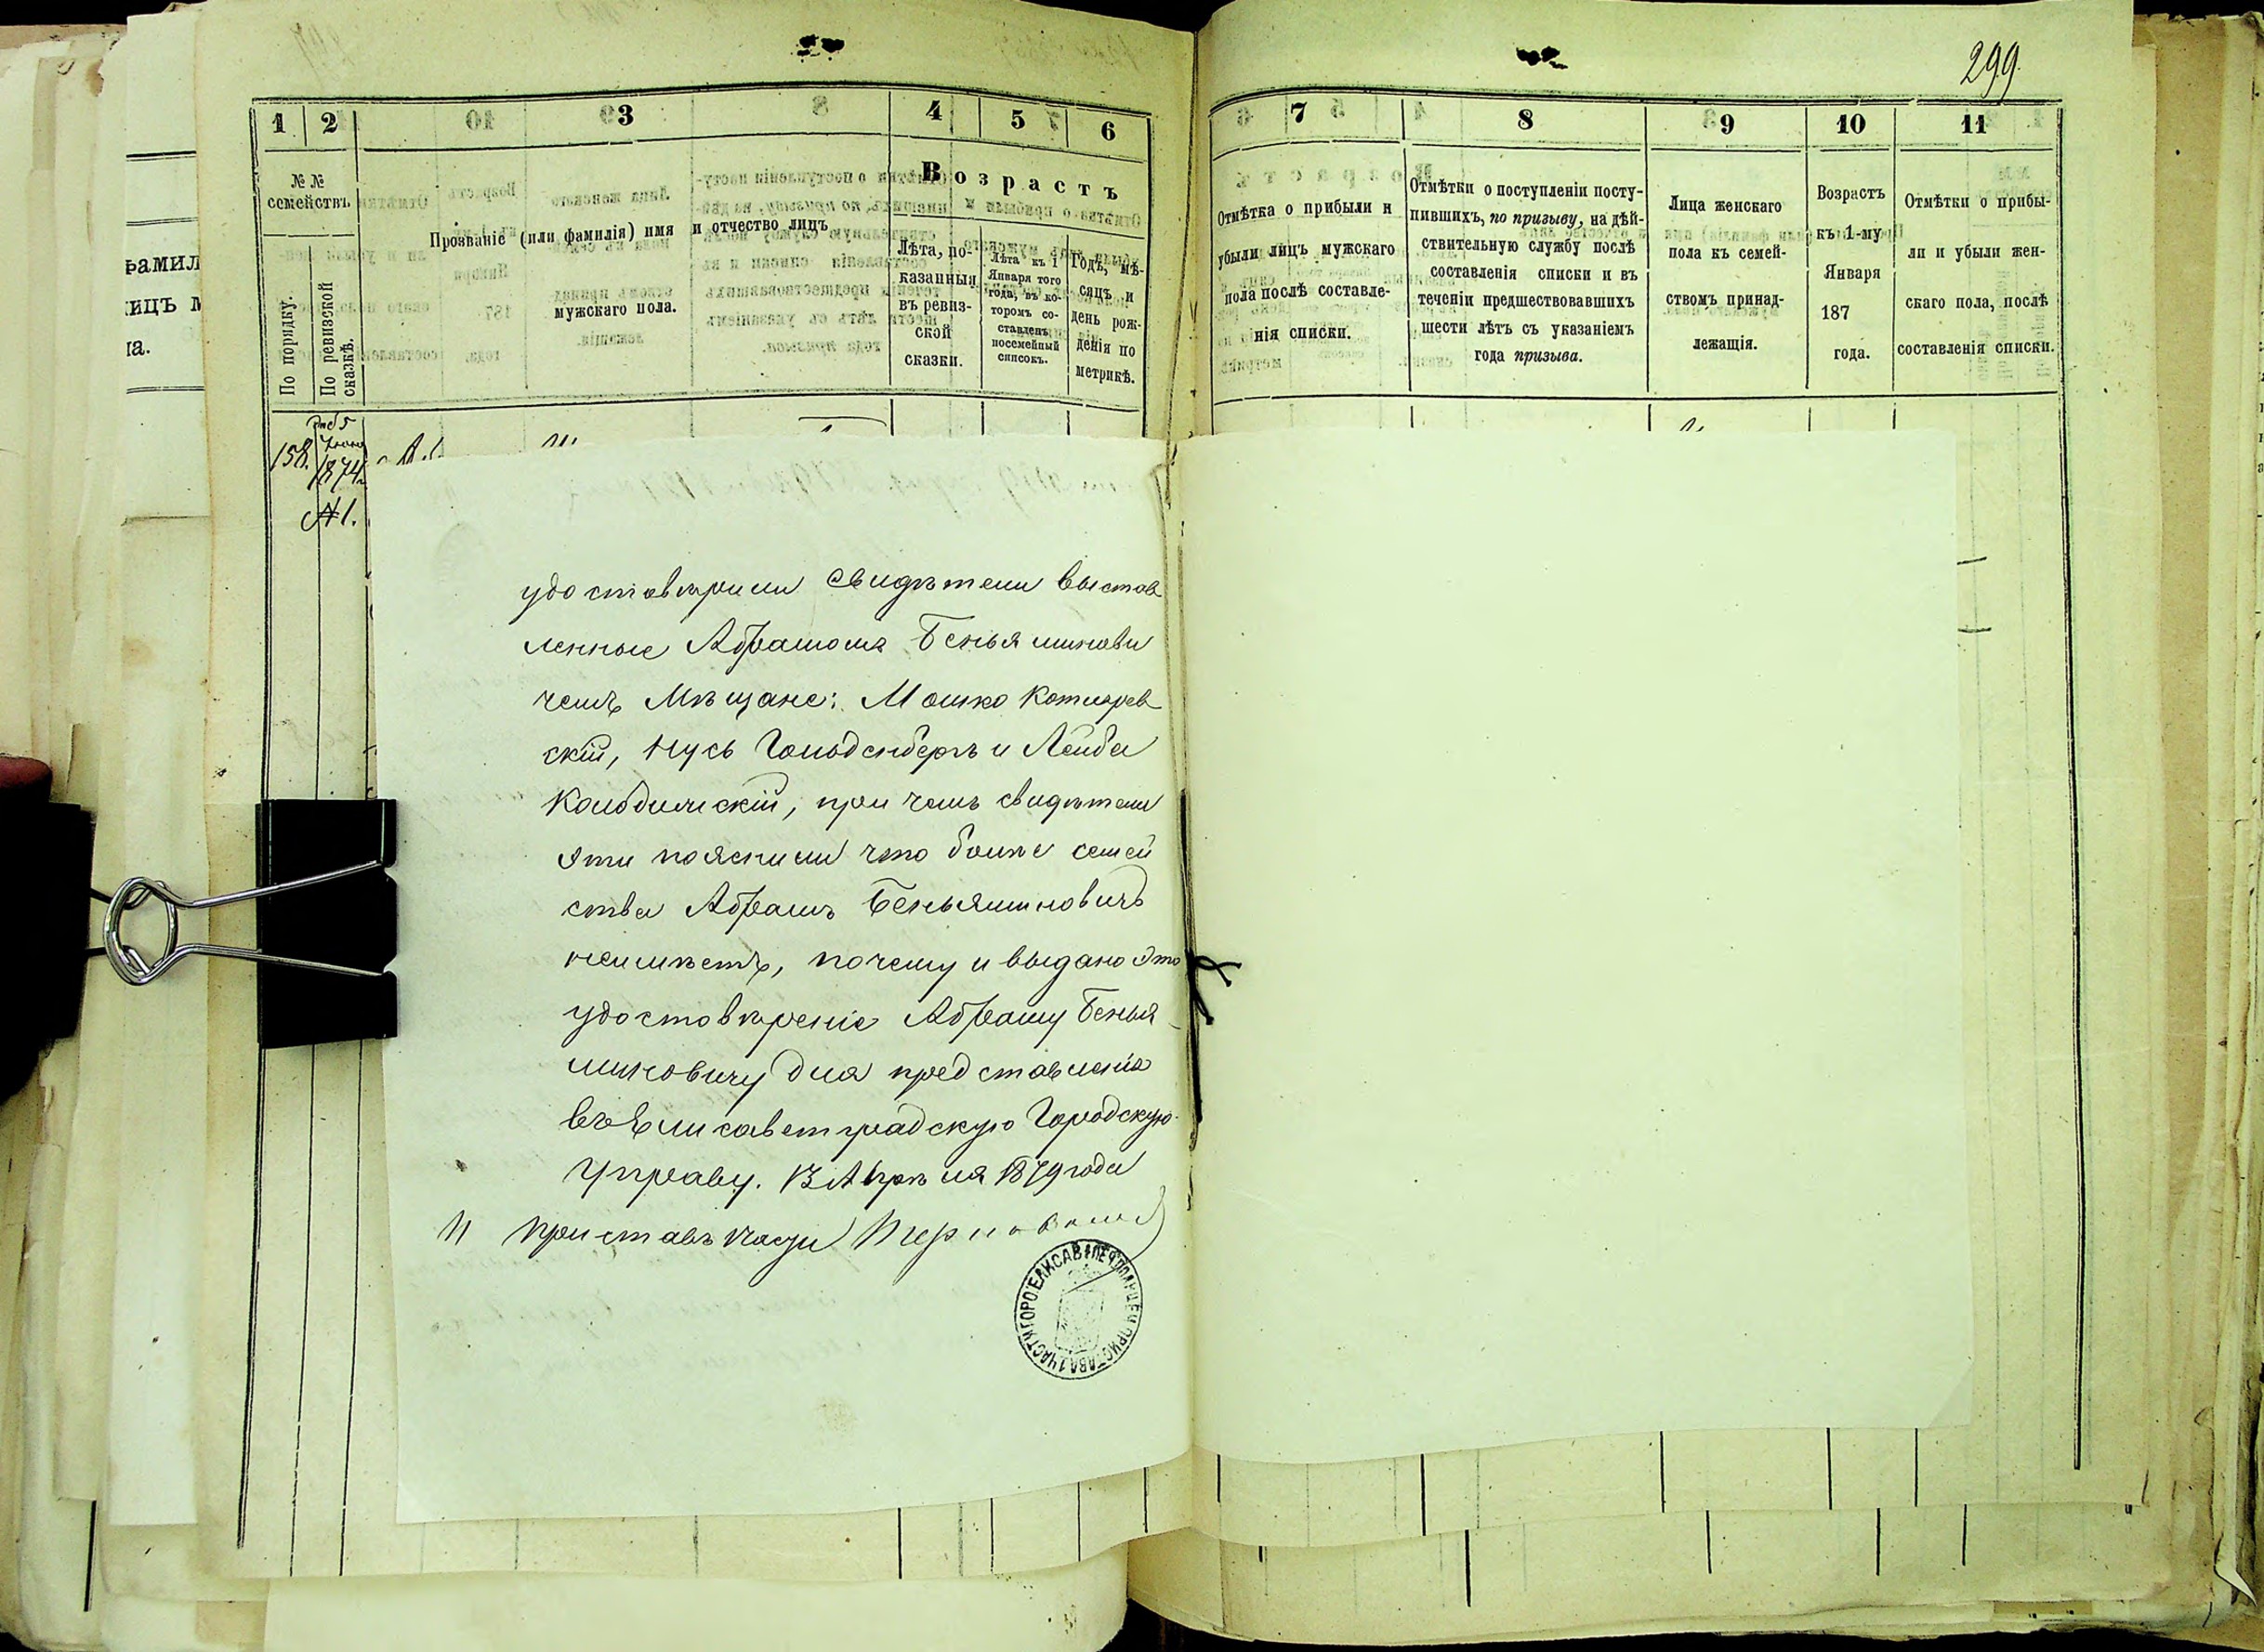 299
1 2 3 4 5 6
№ №
семействъ.
По порядку.
По ревизской
сказкѣ.
Прозваніе (или фамилія) имя и отчество лицъ
мужскаго пола.
Возрастъ
Лѣта, по-
казанныя
въ ревиз-
ской
сказки.
Лѣта къ 1
Января того
года, въ ко-
торомъ со-
ставленъ
посемейный
списокъ.
Годъ, мѣ-
сяцъ и
день рож-
денія по
метрикѣ.
7 8 9 10 11
Отмѣтка о прибыли и
убыли лицъ мужскаго
пола послѣ составле-
нія списки.
Отмѣтки о поступленіи посту-
пившихъ, по призыву, на дѣй-
ствительную службу послѣ
составленія списки и въ
теченіи предшествовавшихъ
шести лѣтъ съ указаніемъ
года призыва.
Лица женскаго
пола къ семей-
ствомъ принад-
лежащія.
Возрастъ
къ 1-му
Января
187
года.
Отмѣтки о прибы-
ли и убыли жен-
скаго пола, послѣ
составленія списки.
158.
1874
№1.
удостовѣрили свидѣтели выстав
ленные Абрамомъ Беньяминови
чемъ Мѣщане: Мошко Котлярев
скій, Нусь Гольденбергъ и Лейба
, при чемъ свидѣтели
эти пояснили что болѣе семей
ства Абрамъ Беньяминовичъ
неимѣетъ, почему и выдано это
удостовѣреніе Абраму Бенья
миновичу для представленія
въ Елисаветградскую Городскую
Управу. 13 Апрѣля 1879 года
Приставъ части